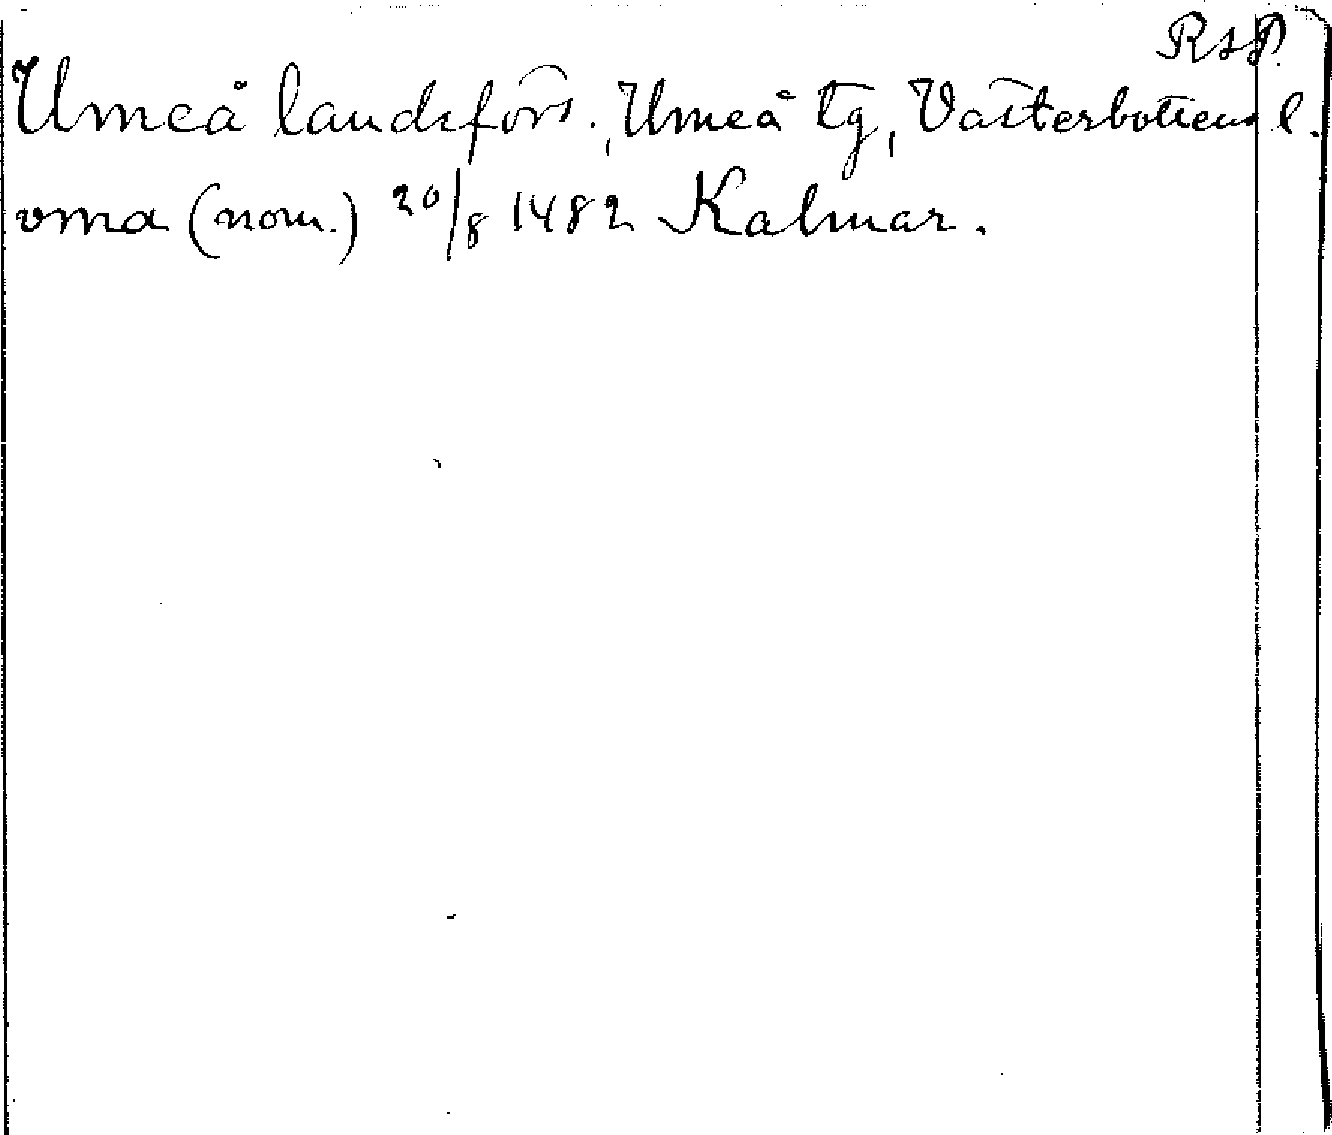 RAP.
Umeå landsförs., Umeå tg, Västerbottens l.
vma (nom.) 20/8 1482 Kalmar.